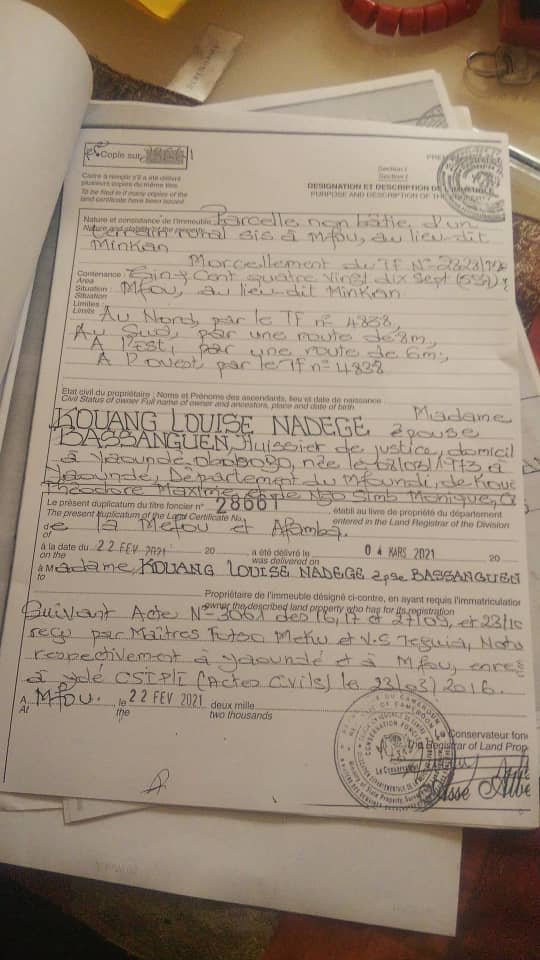 Copie sur
Section I
Section I
Cadre à remplir s'il a été délivré
plusieurs copies du même titre.
To be filed in if many copies of the
land certificate have been issued
DESIGNATION ET DESCRIPTION DE L'IMMEUBLE
PURPOSE AND DESCRIPTION OF THE
Nature et consistance de l'immeuble Parcelle non bâtie d'un
Nature and
terrain rural sis à Mfou, au lieu-dit
Minkan
Morcellement du TF N°
Contenance : Cinq Cent quatre vingt dix Sept
Area
Situation : Mfou, au lieu-dit Minkan
Situation
Limites :
Limits
Au Nord, par le TF n° 4838,
Au Sud, par une route de 8m,
A l'Est, par une route de 6m,
A l'ouest, par le TF n° 4838
Etat civil du propriétaire : Noms et Prénoms des ascendants, lieu et date de naissance
Civil Status of owner Full name of owner and ancestors, place and date of birth
Madame
KOUANG LOUISE NADEGE épouse
BASSANGUEN, Huissier de justice, domicil
à Yaoundé, née le à
Yaoundé, Département du Mfoundi, de Koua
Théodore Maxime et de Ngo Simb Monique,
Le présent duplicatum du titre foncier n° 28661 établi au livre de propriété du département
The present duplicatum of the Land Certificate No. entered in the Land Registrar of the Division
de la Méfou et Afamba.
of
à la date du 22 FEV 2021 20 a été délivré le 04 MARS 2021 20
on the was delivered on
à Madame KOUANG LOUISE NADEGE épse BASSANGUEN
to
Propriétaire de l'immeuble désigné ci-contre, en ayant requis l'immatriculation
owner the described land property who has for its registration
Suivant Acte N° 3061 des 16, 17 et 27/09, et 23/10
reçu par Maîtres Futso Metiu et V.S Teguia, Nota
respectivement à Yaoundé et à Mfou, enreg
à Ydé CSIPLI (Actes Civils) le 23/03/2016.
A Mfou. le 22 FEV 2021 deux mille
At the two thousands
Conservateur fonc
the Registrar of Land Prop